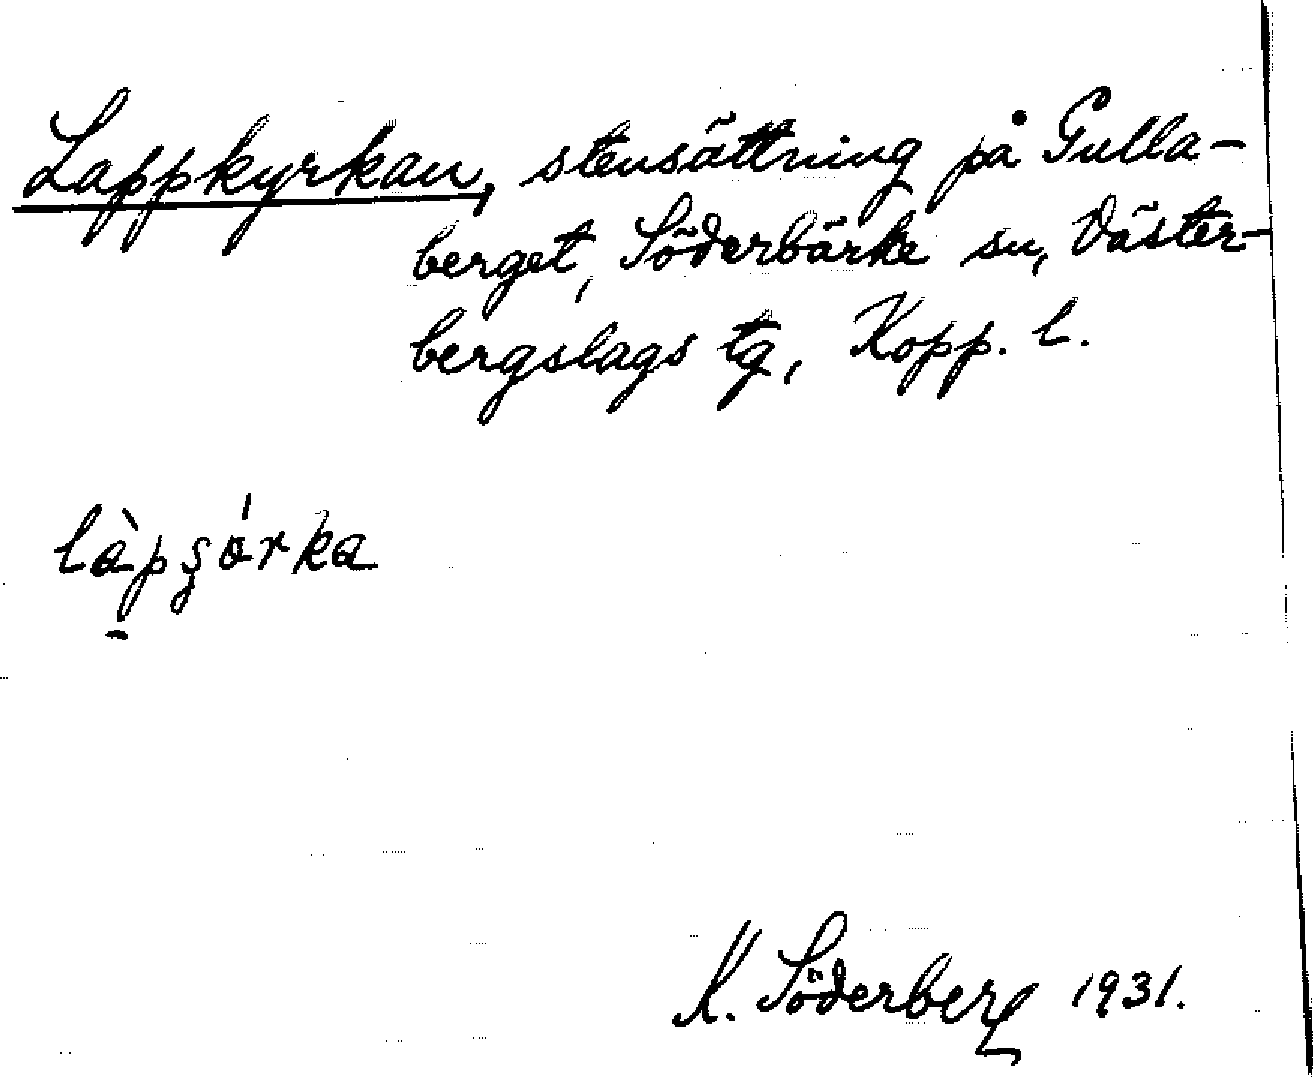 Lappkyrkan, stensättning på Gulla-
berget, Söderbärke sn, Väster-
bergslags tg, Kopp. l.
K. Söderberg 1931.